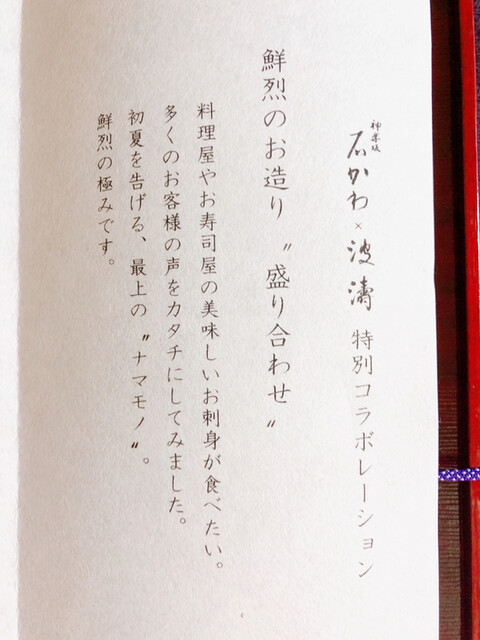 神楽坂
石かわ×波濤 特別コラボレーション
鮮烈のお造り〝盛り合わせ〟
料理屋やお寿司屋の美味しいお刺身が食べたい。
多くのお客様の声をカタチにしてみました。
初夏を告げる、最上の〝ナマモノ〟。
鮮烈の極みです。
4